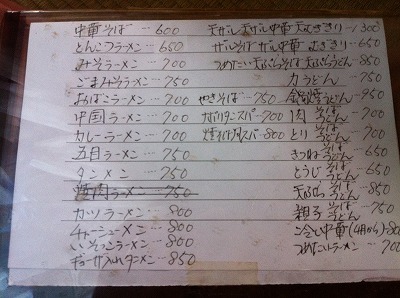 中華そば…600
とんこつラーメン…650
みそラーメン…700
ごまみそラーメン…750
おばこラーメン…700
中国ラーメン…700
カレーラーメン…700
五目ラーメン…750
タンメン…750
焼肉ラーメン…750
カツラーメン…800
チャーシューメン…800
いそっこラーメン…800
ギョーザ入れラーメン…850
やきそば…750
ナポリタンスパ…700
スパ…800
天ザル天ザル中華天むぎきり…1300
ザルそばザル中華むぎきり…650
つめたい天ぷらそば天ぷらうどん…850
力うどん…750
鍋焼うどん…950
肉そばうどん…700
とりそばうどん…700
きつねそばうどん…650
とうじそばうどん…650
天ぷらそばうどん…850
親子そばうどん…750
冷し中華(4月から)…800
つめたいラーメン…700